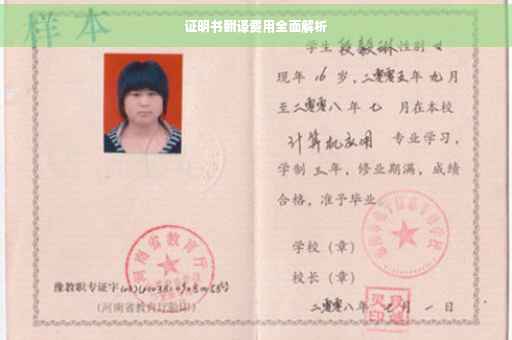 证明书翻译费用全面解析
样本
学生段毅琳性别女
现年16岁，二零零五年九月
至二零零八年七 月在本校
计算机应用 专业学习，
学制三年，修业期满，成绩
合格，准予毕业。
学校（章）
校长（章）
二零零八年七月一日
河南省教育厅
豫教职专证字
（河南省教育厅验印）